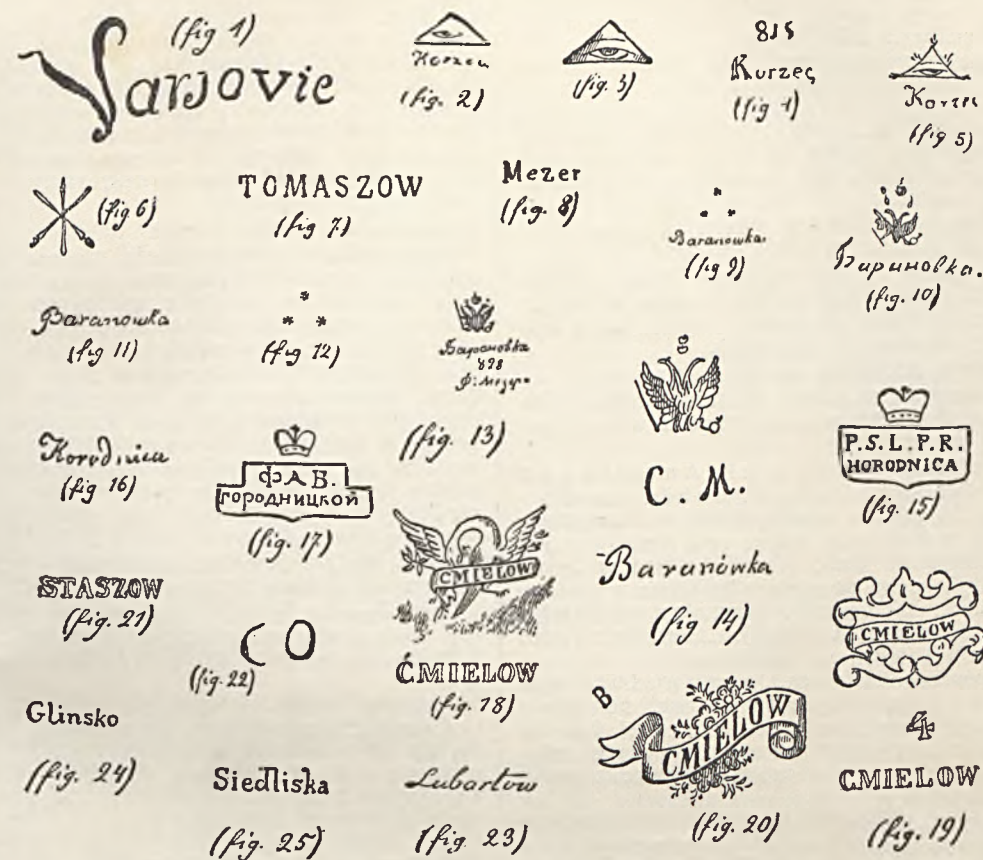 (fig 1)
Varsovie
Korzec
(fig. 2)
(fig. 3)
815
Korzec
(fig 4)
Korzec
(fig 5)
(fig 6)
TOMASZOW
(fig 7)
Mezer
(fig. 8)
Baranowka.
(fig 9)
Барановка.
(fig. 10)
Baranowka
(fig 11)
(fig 12)
Барановка
898
(fig. 13)
C. M.
Baranówka
(fig 14)
P. S. L. P. R.
HORODNICA
(fig. 15)
Horodnica
(fig 16)
ФАБ.
ГОРОДНИЦКОЙ
(fig. 17)
CMIELOW
ĆMIELOW
(fig. 18)
CMIELOW
4
CMIELOW
(fig. 19)
B
CMIELOW
(fig. 20)
STASZOW
(fig. 21)
CO
(fig. 22)
Lubartow
(fig. 23)
Glinsko
(fig. 24)
Siedliska
(fig. 25)